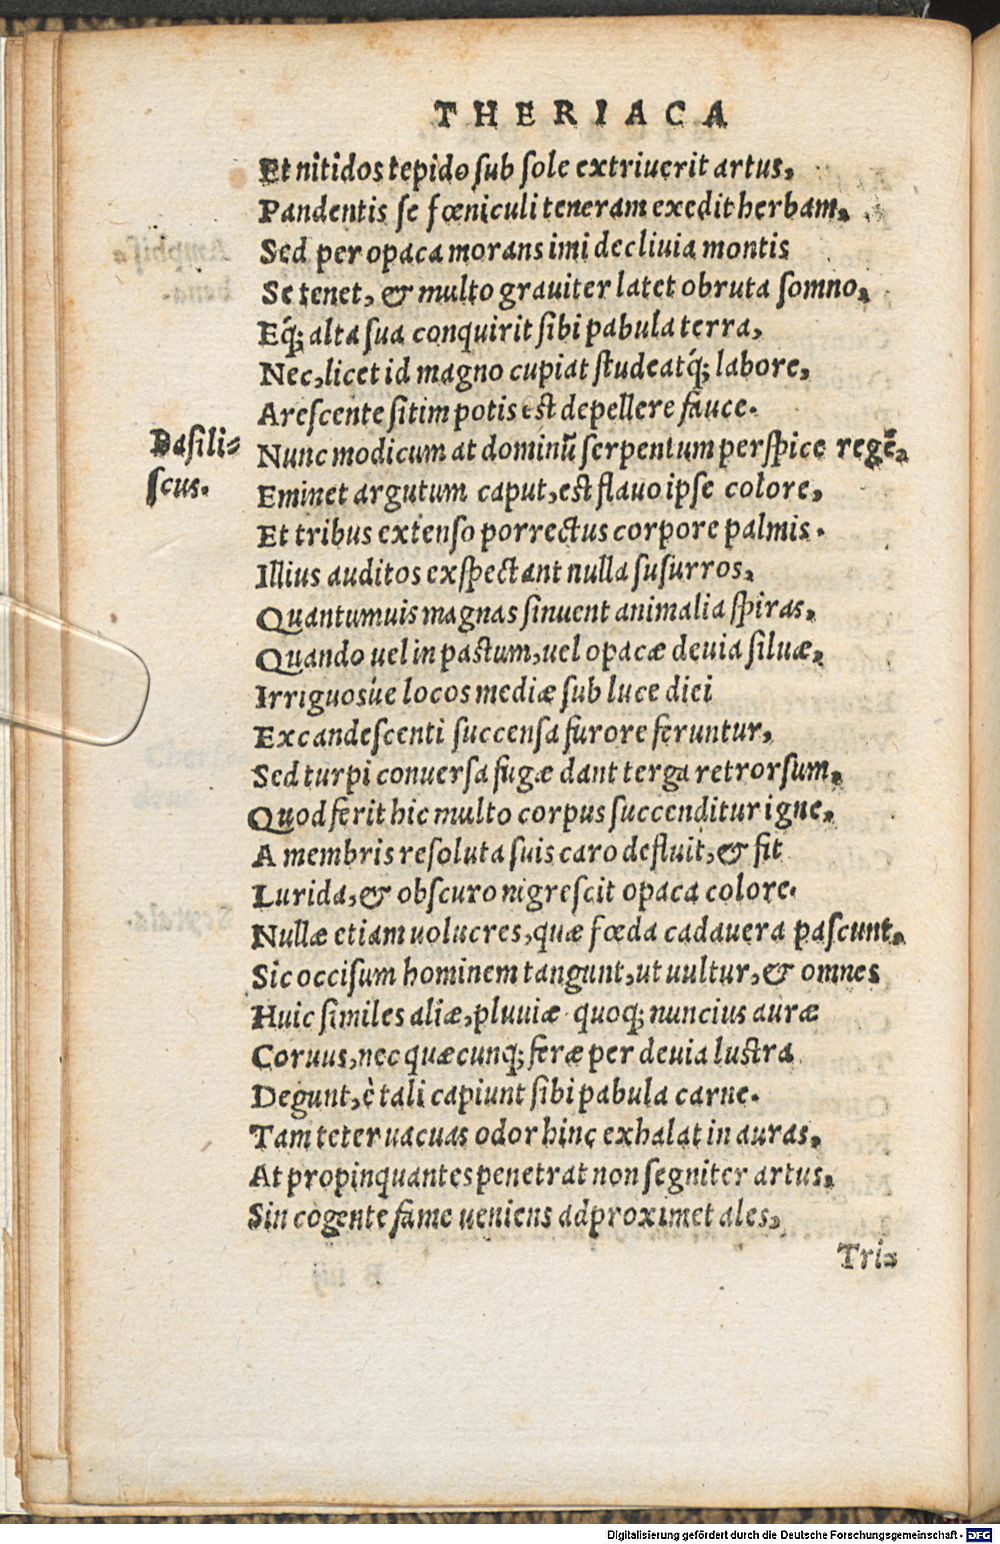 THERIACA
Et nitidos tepido sub sole extriuerit artus,
Pandentis se fœniculi teneram exedit herbam,
Sed per opaca morans imi decliuia montis
Se tenet, & multo grauiter latet obruta somno,
Eq́; alta sua conquirit sibi pabula terra,
Nec, licet id magno cupiat studeatq́; labore,
Arescente sitim potis est depellere fauce.
Basili=
scus.
Nunc modicum at dominũ serpentum perspice regẽ,
Eminet argutum caput, est flauo ipse colore,
Et tribus extenso porrectus corpore palmis.
Illius auditos exspectant nulla susurros,
Quantumuis magnas sinuent animalia spiras,
Quando uel in pastum, uel opacæ deuia siluæ,
Irriguosúe locos mediæ sub luce diei
Excandescenti succensa furore feruntur,
Sed turpi conuersa fugæ dant terga retrorsum,
Quod ferit hic multo corpus succenditur igne,
A membris resoluta suis caro defluit, & fit
Lurida, & obscuro nigrescit opaca colore.
Nullæ etiam uolucres, quæ fœda cadauera pascunt,
Sic occisum hominem tangunt, ut uultur, & omnes
Huic similes aliæ, pluuiæ quoq; nuncius auræ
Coruus, nec quæcunq; feræ per deuia lustra
Degunt, è tali capiunt sibi pabula carne.
Tam teter uacuas odor hinc exhalat in auras,
At propinquantes penetrat non segniter artus,
Sin cogente fame ueniens adproximet ales,
Tri=
Digitalisierung gefördert durch die Deutsche Forschungsgemeinschaft - DFG